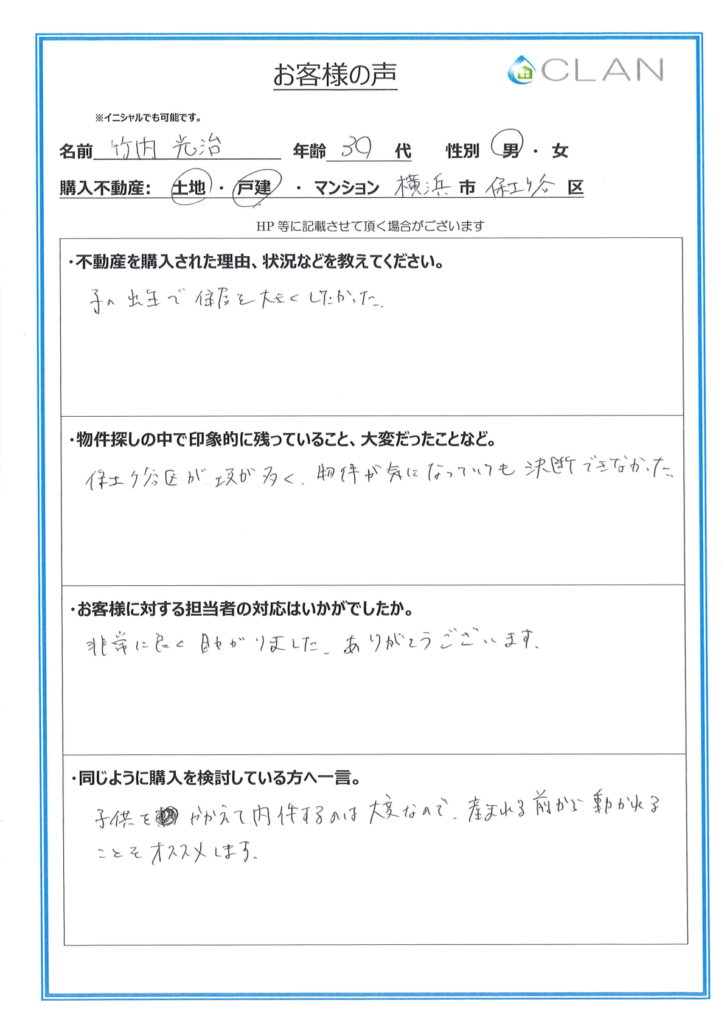 お客様の声
CLAN
※イニシャルでも可能です。
名前 竹内 光治 年齢 30 代 性別 男 ・ 女
購入不動産: 土地 ・ 戸建 ・ マンション 横浜 市 保土ケ谷 区
HP 等に記載させて頂く場合がございます
・不動産を購入された理由、状況などを教えてください。
子の出生で住居を大きくしたかった。
・物件探しの中で印象的に残っていること、大変だったことなど。
保土ケ谷区が坂が多く、物件が気になっていても決断できなかった。
・お客様に対する担当者の対応はいかがでしたか。
非常に良く助かりました。ありがとうございます。
・同じように購入を検討している方へ一言。
子供を かかえて内件するのは大変なので、産まれる前から動かれる
ことをオススメします。